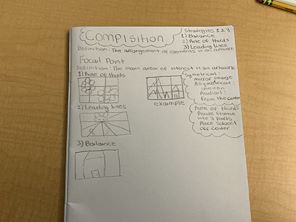 Composition
Definition: The arrangement of elements in an artwork
Strategies 1, 2, 3
1) Balance
2) Rule of thirds
3) Leading lines
Focal Point
Definition: The main area of interest in an artwork
1) Rule of thirds
2) Leading lines
3) Balance
example
Symetrical
mirror image
Asymetrical
uneven
Radial:
From the center
Rule of thirds:
Divide frame
into 3 parts
Place subject
off center